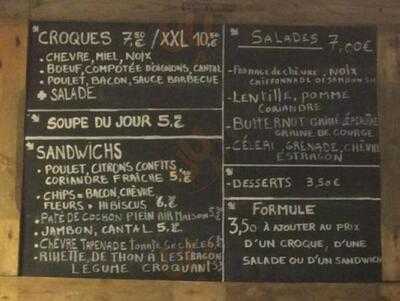 CROQUES 7,50 / XXL 10,50
• CHEVRE, MIEL, NOIX
• BOEUF, COMPOTÉE D'OIGNONS, CANTAL
• POULET, BACON, SAUCE BARBECUE
+ SALADE
SOUPE DU JOUR 5,
SANDWICHS
• POULET, CITRONS CONFITS,
CORIANDRE FRAÎCHE 5,
• CHIPS DE BACON CHÈVRE,
FLEURS D'HIBISCUS 6,
• PATÉ DE COCHON PLEIN AIR MAISON 5,
• JAMBON, CANTAL 5,
• CHEVRE TAPENADE Tomate Sechée 6,
• RILLETTE DE THON A L'ESTRAGON
LEGUME CROQUANT
SALADES 7,00€
- FROMAGE de CHÈVRE, NOIX
CHIFFONNADE DE JAMBON
- LENTILLE, POMME
CORIANDRE
- BUTTERNOT
GRAINE DE COURGE
- CÉLERI, GRENADE, CHÈVRE
ESTRAGON
• DESSERTS 3,50€
FORMULE
3,50 À AJOUTER AU PRIX
D'UN CROQUE, D'UNE
SALADE OU D'UN SANDWICH